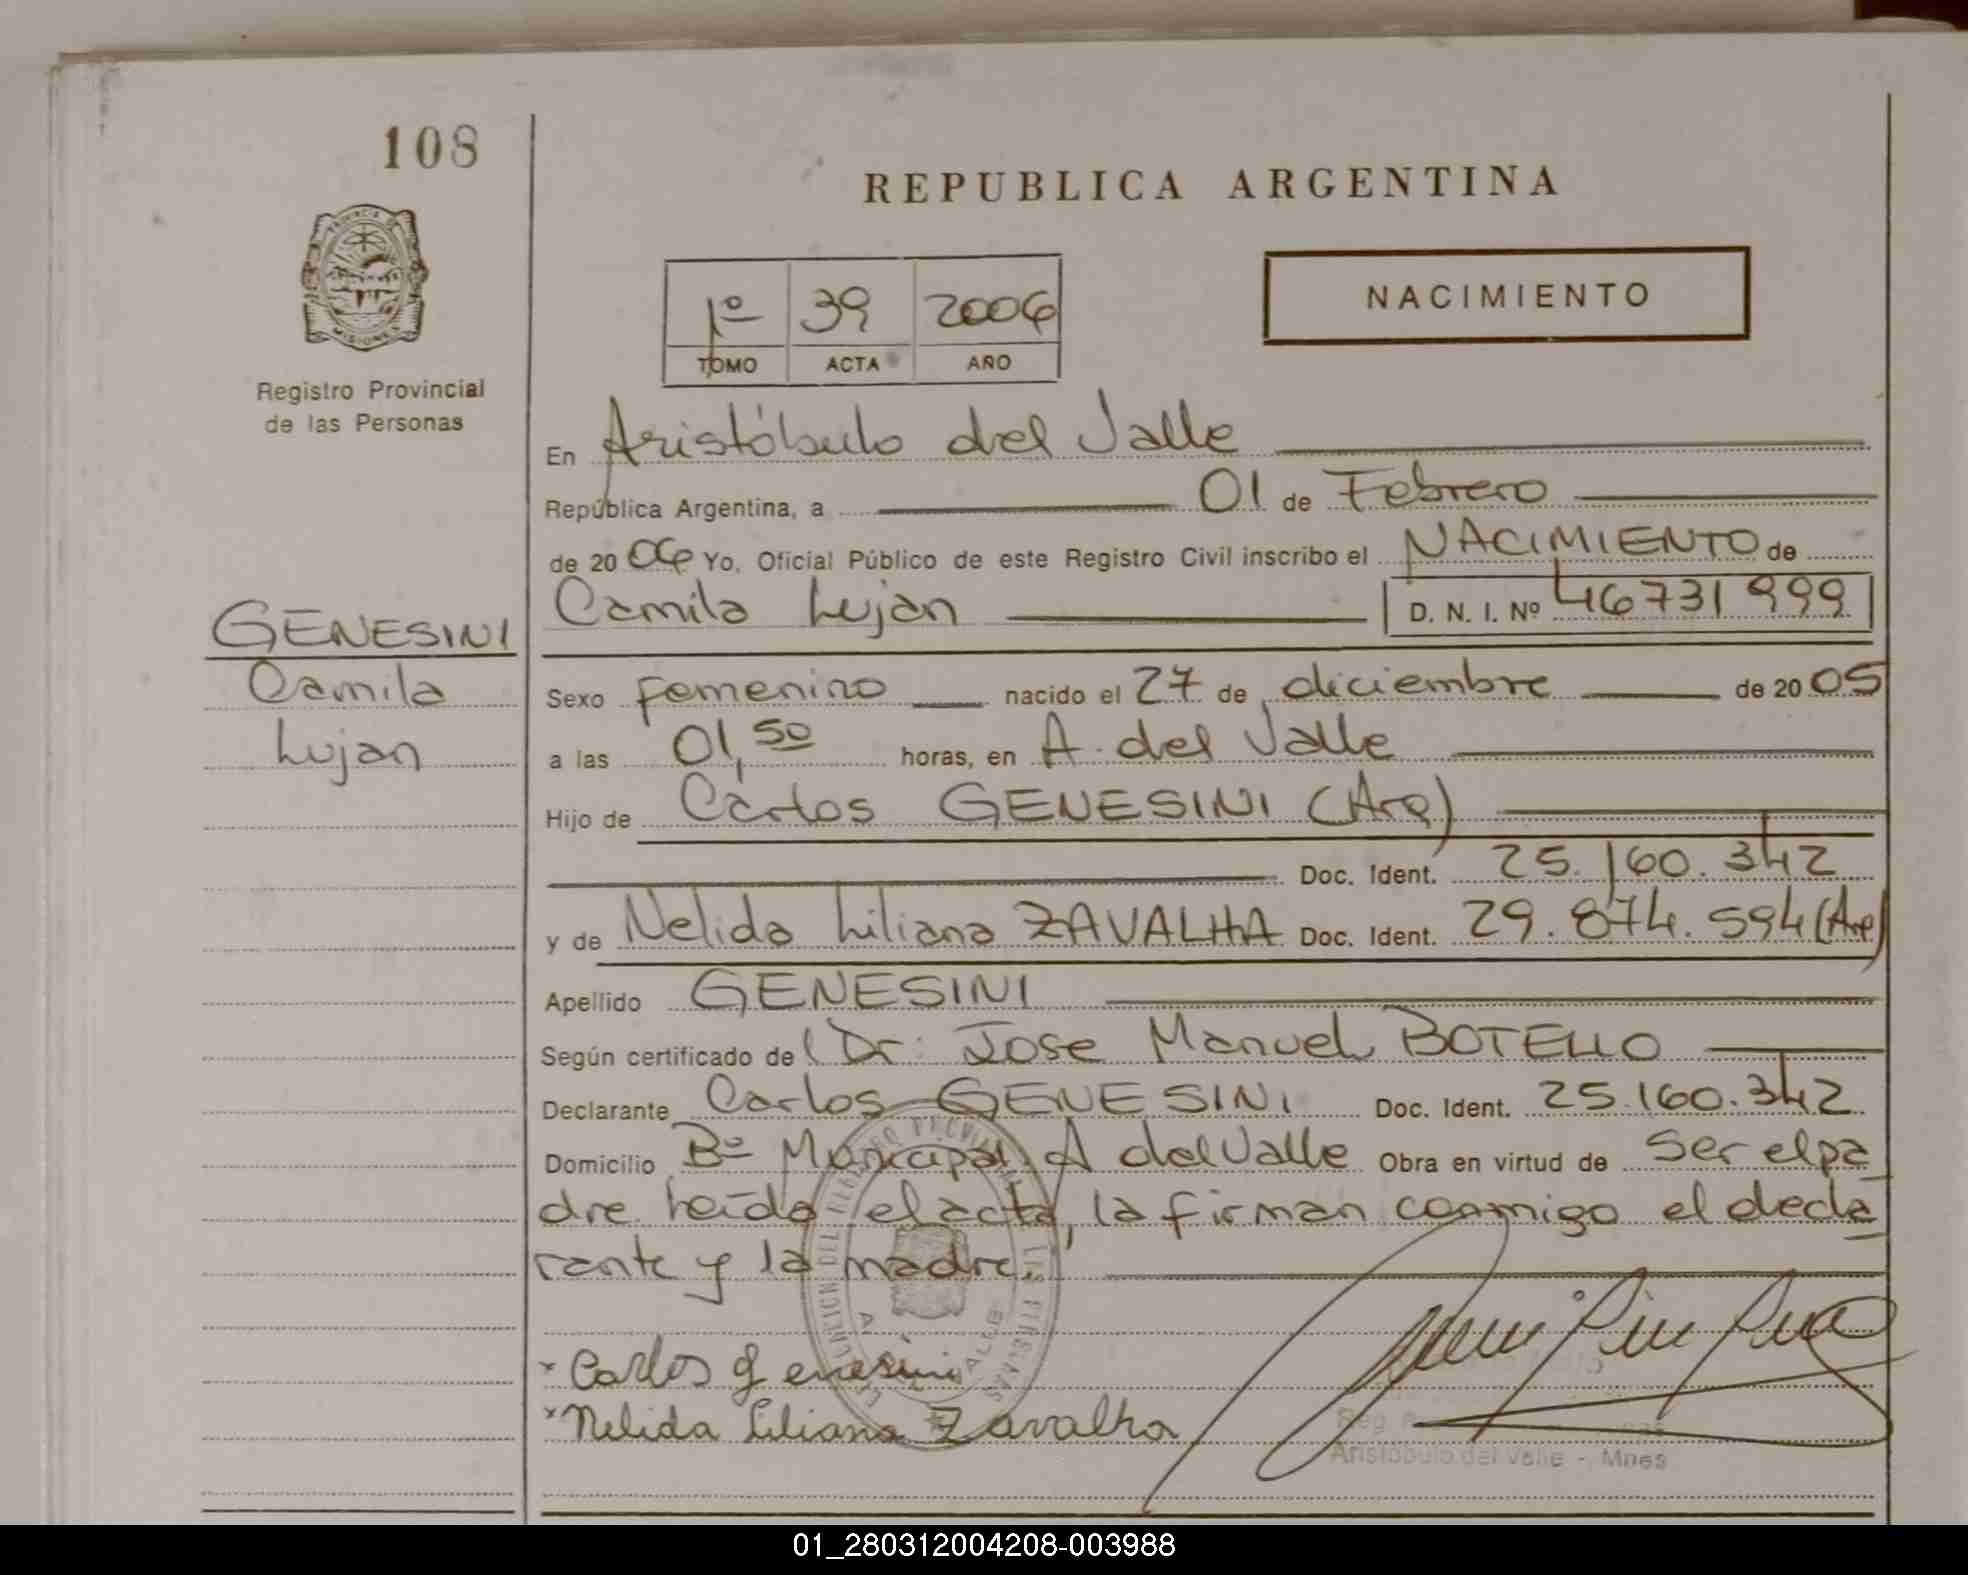 108
REPUBLICA ARGENTINA
PROVINCIA DE
MISIONES
Registro Provincial
de las Personas
1º 39 2006
TOMO ACTA AÑO
NACIMIENTO
En Aristóbulo del Valle
República Argentina, a 01 de Febrero
de 20 06 Yo, Oficial Público de este Registro Civil inscribo el NACIMIENTO de
Camila Lujan D. N. I. Nº 46731999
GENESINI
Camila
Lujan
Sexo femenino nacido el 27 de diciembre de 20 05
a las 01,50 horas, en A. del Valle
Hijo de Carlos GENESINI (Arg)
Doc. Ident. 25.160.342
y de Nelida Liliana ZAVALHA Doc. Ident. 29.874.594 (Arg)
Apellido GENESINI
Según certificado de Dr. Jose Manuel BOTELLO
Declarante Carlos GENESINI Doc. Ident. 25.160.342
Domicilio Bº Municipal A del Valle Obra en virtud de ser el pa
dre. Leída el acta, la firman conmigo el decla
rante y la madre.
Carlos Genesini
Nelida Liliana Zavalha
Aristóbulo del Valle - Mnes
01_280312004208-003988